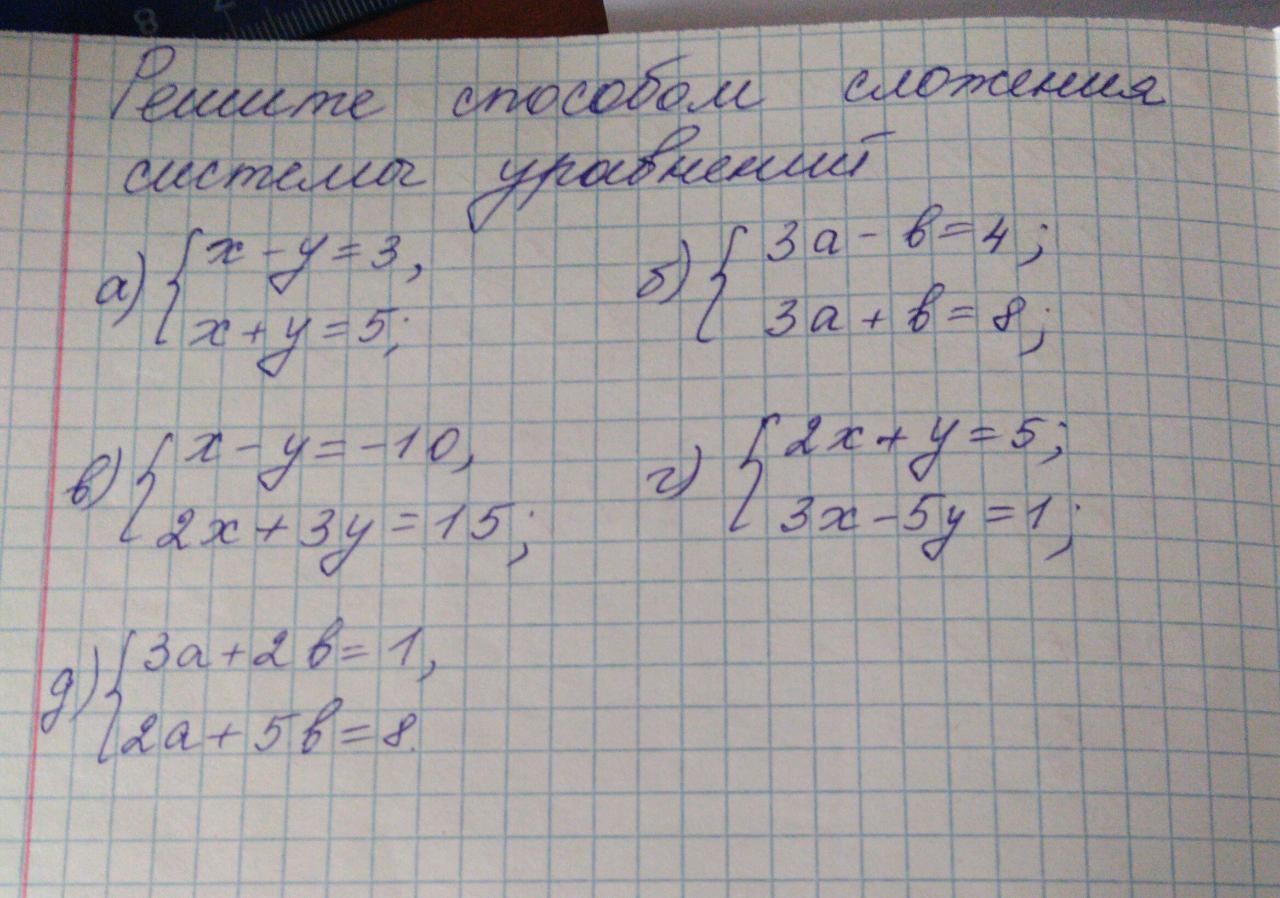 8 2
Решите способом сложения
системы уравнений
а) { x - y = 3,
x + y = 5;
б) { 3a - b = 4;
3a + b = 8;
в) { x - y = -10,
2x + 3y = 15;
г) { 2x + y = 5;
3x - 5y = 1;
д) { 3a + 2b = 1,
2a + 5b = 8.